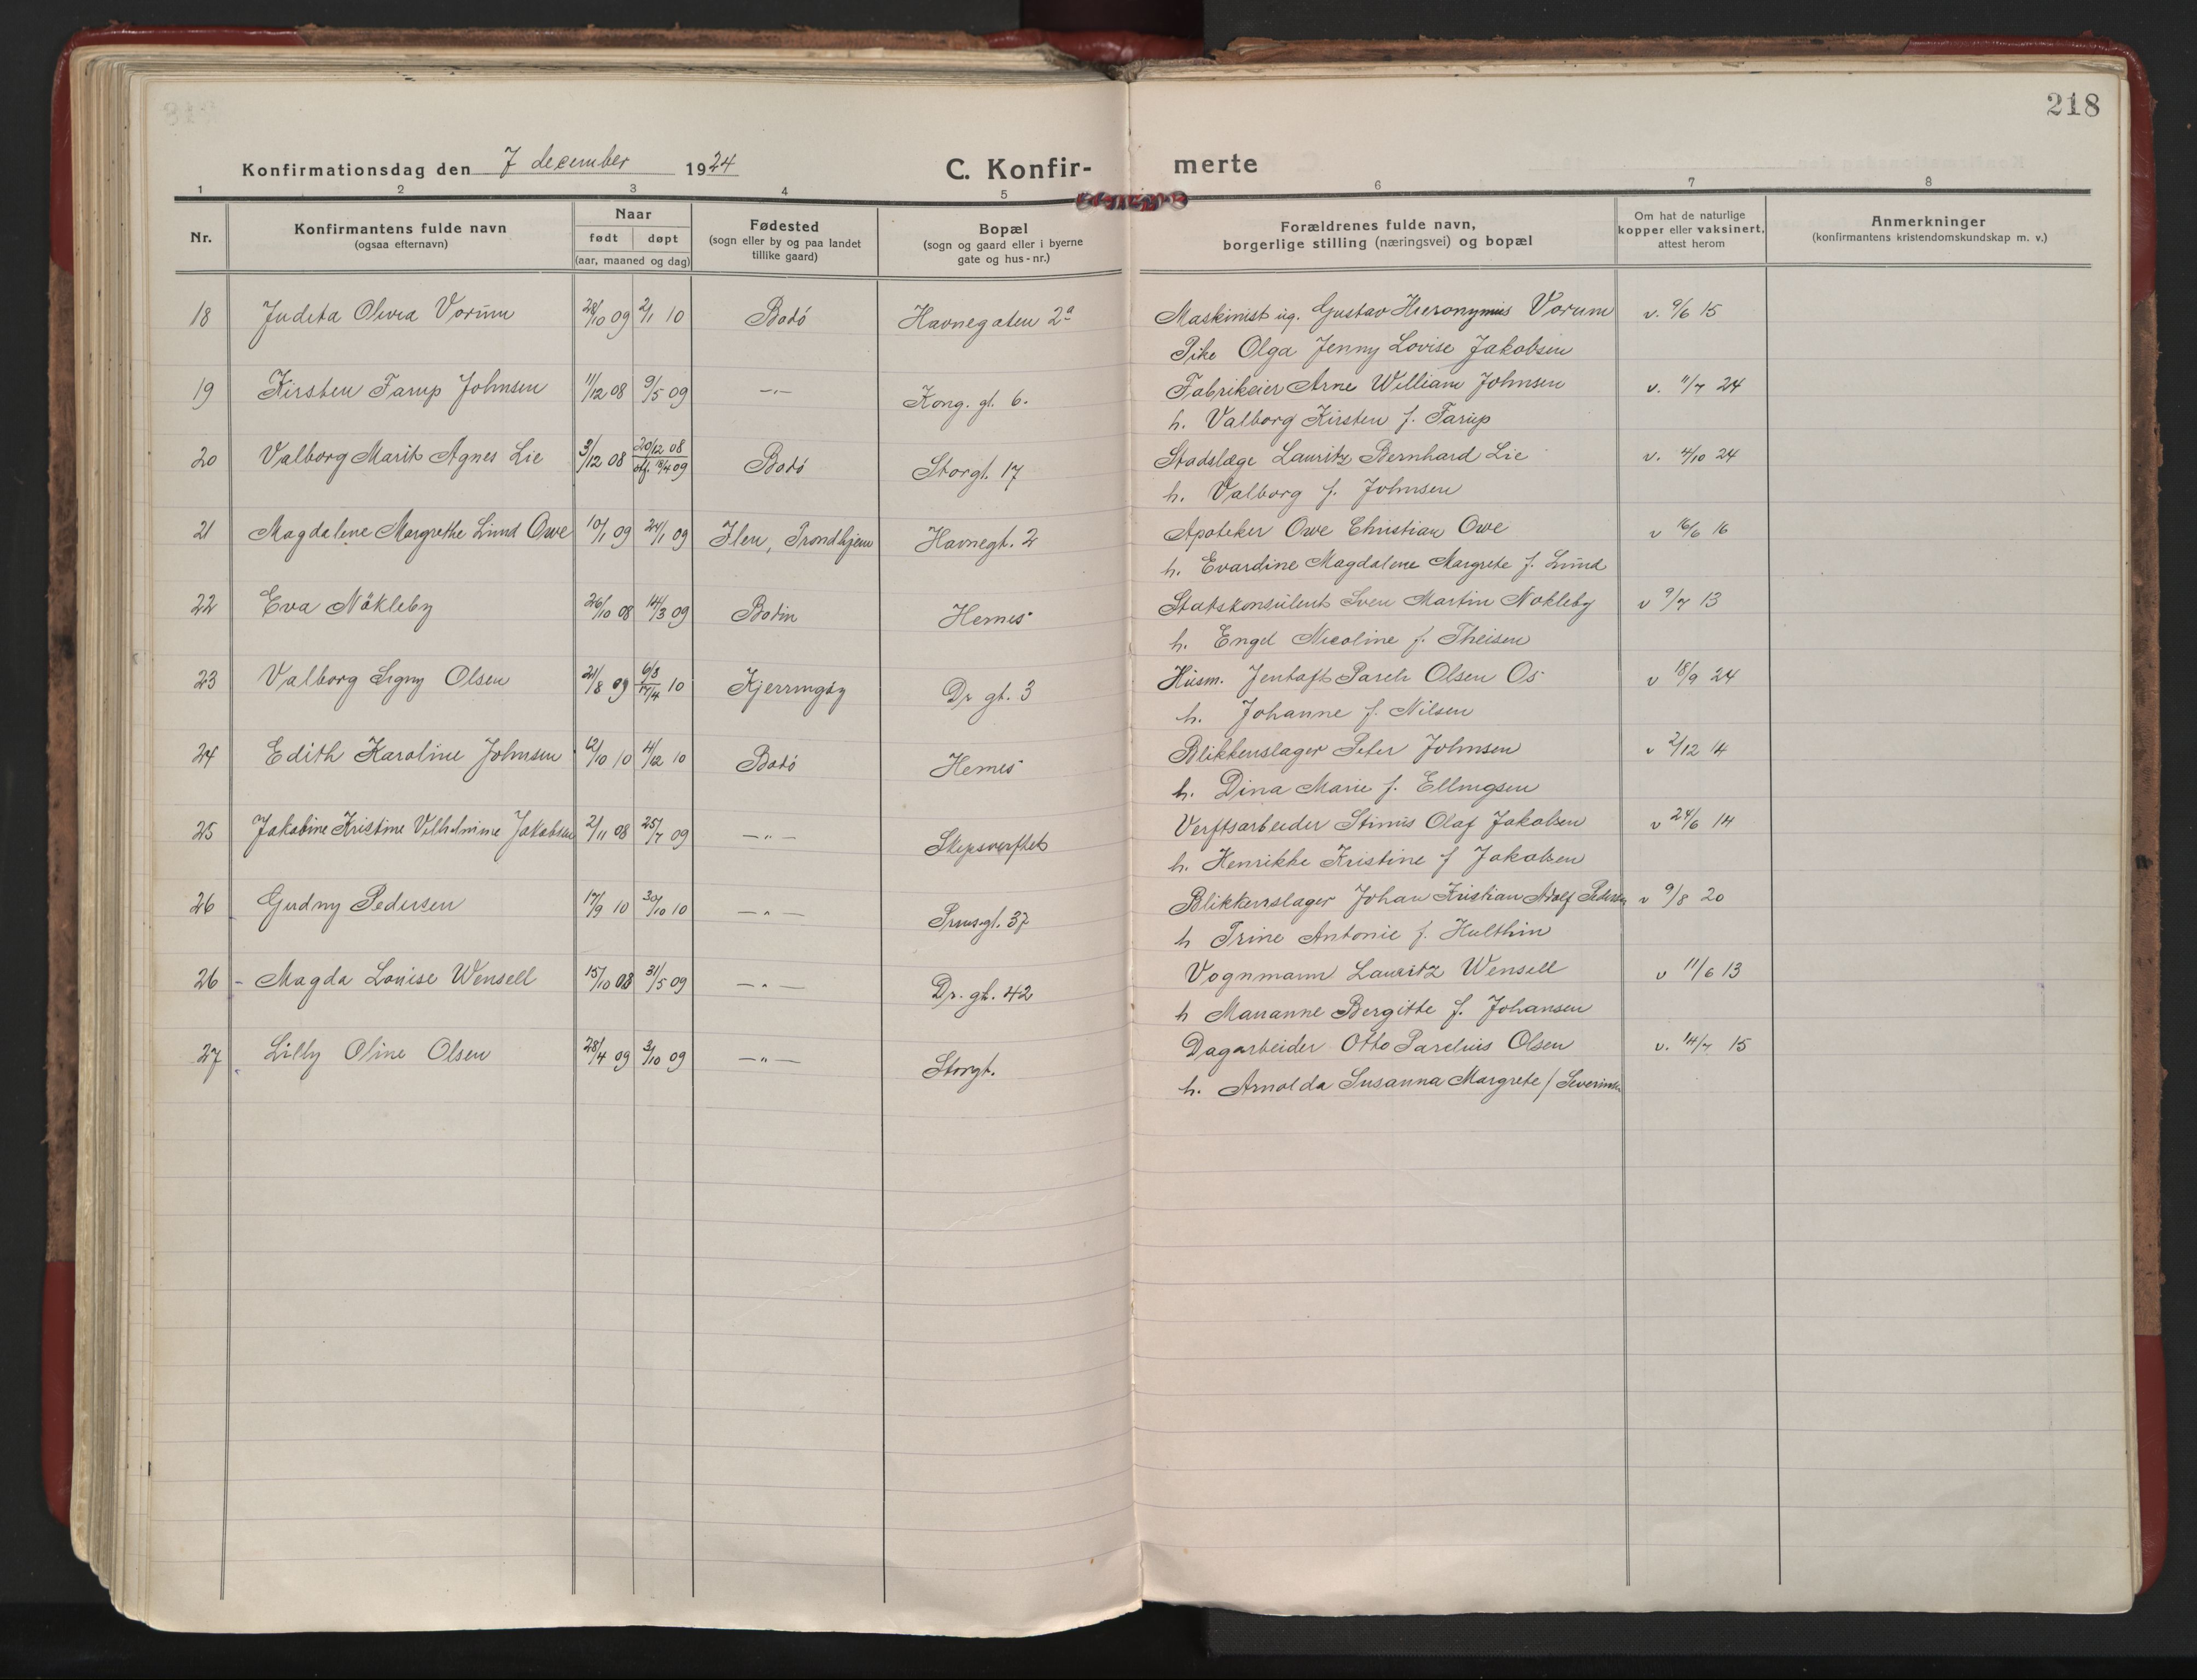 218
Konfirmationsdag den 7 december 1924 C. Konfir- merte
1 2 3 4 5 6 7 8
Nr. Konfirmantens fulde navn (ogsaa efternavn) Naar født døpt (aar, maaned og dag) Fødested (sogn eller by og paa landet tillike gaard) Bopæl (sogn og gaard eller i byerne gate og hus-nr.) Forældrenes fulde navn, borgerlige stilling (næringsvei) og bopæl Om hat de naturlige kopper eller vaksinert, attest herom Anmerkninger (konfirmantens kristendomskundskap m. v.)
18 Judita Olivia Vorum 28/10 09 2/1 10 Bodó Havnegaten 2a Maskinist ug. Gustav Hieronymus Vorum v. 9/6 15
Pike Olga Jenny Lovise Jakobsen
19 Kirsten Farup Johnsen 11/12 08 9/5 09 —"— Kong. gt. 6. Fabrikeier Arne William Johnsen v. 11/7 24
h. Valborg Kirsten f. Farup
20 Valborg Marit Agnes Lie 3/12 08 20/12 08 stf. 18/4 09 Bodó Storgt. 17 Stadslæge Lauritz Bernhard Lie v. 4/10 24
h. Valborg f. Johnsen
21 Magdalene Margrethe Lund Owe 10/1 09 24/1 09 Ilen, Trondhjem Havnegt. 2 Apoteker Owe Christian Owe v 16/6 16
h. Evardine Magdalene Margrete f. Lund
22 Eva Nökleby 26/10 08 14/3 09 Bodin Hernes Statskonsulent Sven Martin Nokleby v 9/7 13
h. Engel Nicoline f. Theisen
23 Valborg Signy Olsen 21/8 09 6/3 17/4 10 Kjerringöy Dr gt. 3 Husm. Jentoft Parelr Olsen Os v 18/9 24
h. Johanne f. Nilsen
24 Edith Karoline Johnsen 12/10 10 4/12 10 Bodó Hernes Blikkenslager Peter Johnsen v 2/12 14
h. Dina Marie f. Ellingsen
25 Jakobine Kristine Vilhelmine Jakobsen 2/11 08 25/7 09 —"— Skipsverftet Verftsarbeider Stinius Olaf Jakobsen v 24/6 14
h. Henrikke Kristine f Jakobsen
26 Gudny Pedersen 17/9 10 30/10 10 —"— Prinsgt. 37 Blikkenslager Johan Kristian Adolf Pedersen v 9/8 20
h Trine Antonie f. Hulthin
26 - Magda Louise Wensell 15/10 08 31/5 09 —"— Dr. gt. 42 Vognmann Lauritz Wensell v 11/6 13
h Marianne Bergitte f. Johansen
27 Lilly Oline Olsen 28/4 09 3/10 09 —"— Storgt. Dagarbeider Otto Parelius Olsen v. 14/7 15
h. Arnolda Susanna Margrete f Severinsen